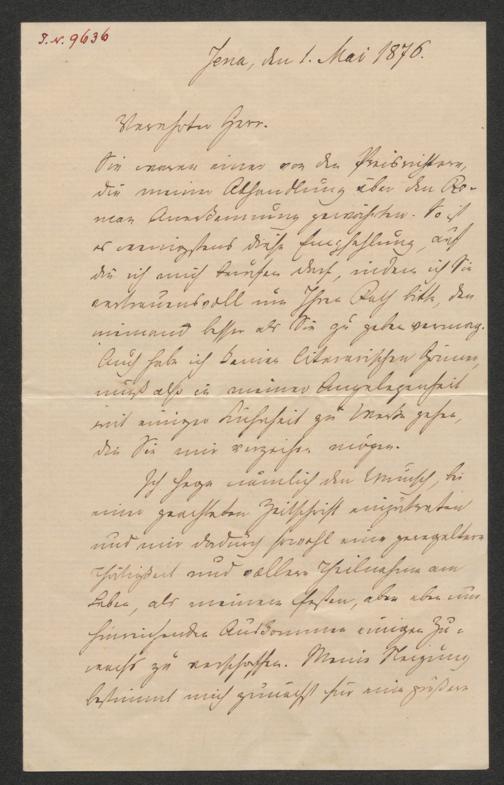 I. N. 9636
Jena, den 1. Mai 1876.
Verehrter Herr.
Sie waren einer von den Preisrichtern,
die meiner Abhandlung über den Ro-
man Anerkennung gewährten. So ist
es wenigstens diese Empfehlung, auf
die ich mich berufen darf, indem ich Sie
vertrauensvoll um Ihren Rath bitte, den
niemand besser als Sie zu geben vermag.
Auch habe ich keinen literarischen
muß also in meiner Angelegenheit
mit einiger Kühnheit zu Werke gehen,
die Sie mir verzeihen mögen.
Ich hege nämlich den Wunsch, bei
einer geachteten Zeitschrift einzutreten
und mir dadurch sowohl eine geregeltere
Thätigkeit und vollere Theilnahme am
Leben, als meinem festen, aber eben nur
hinreichenden Auskommen einigen Zu-
wachs zu verschaffen. Meine Neigung
bestimmt mich zunächst für eine größere